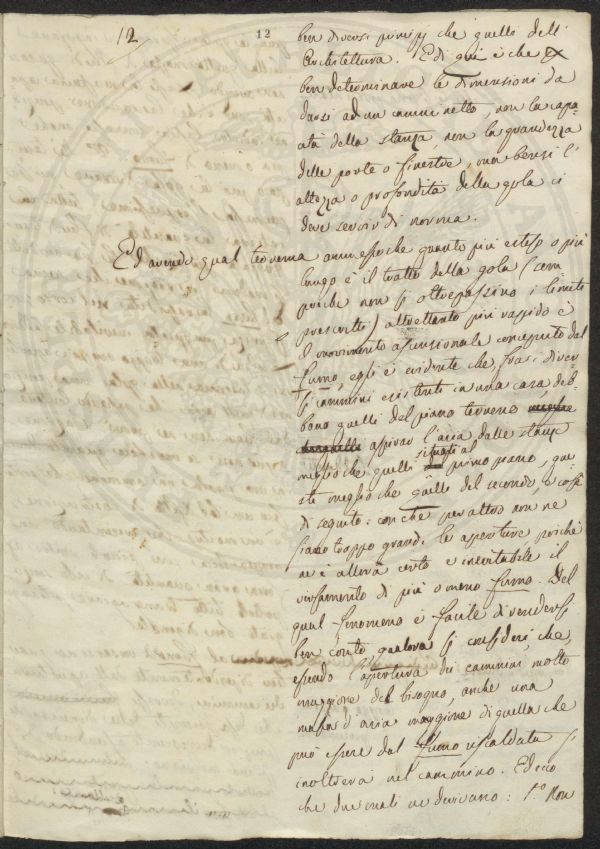 12 12
ben diversi principj che quelli dell'
Architettura. E di quì è che
ben determinare le dimensioni da
darsi ad un camminetto, non la capa-
cità della stanza, non la grandezza
delle porte o finestre, ma bensì l'
altezza o profondità della gola ci
deve servir di norma.
Ed avendo qual teorema ammesso che quanto più esteso o più
lungo è il tratto della gola (sem
prechè non si oltrepassino i limiti
prescritti) altrettanto più rapido è
il movimento ascensionale concepito dal
fumo, egli è evidente che fra i diver
si cammini esistenti in una casa, deb-
bono quelli del piano terreno
aspirar l'aria dalle stanze
meglio che quelli situati al primo piano, que
sti meglio che quelli del secondo, e così
di seguito: con che per altro non ne
siano troppo grandi le aperture perchè
ne è allora certo e inevitabile il
versamento di più o meno fumo. Del
qual fenomeno è facile di rendersi
ben conto qualora si consideri, che
essendo l'apertura dei cammini molto
maggiore del bisogno, anche una
massa d'aria maggiore di quella che
può essere dal fumo riscaldata s'
inoltrerà nel cammino. Ed ecco
che due mali ne derivano: 1.º Non